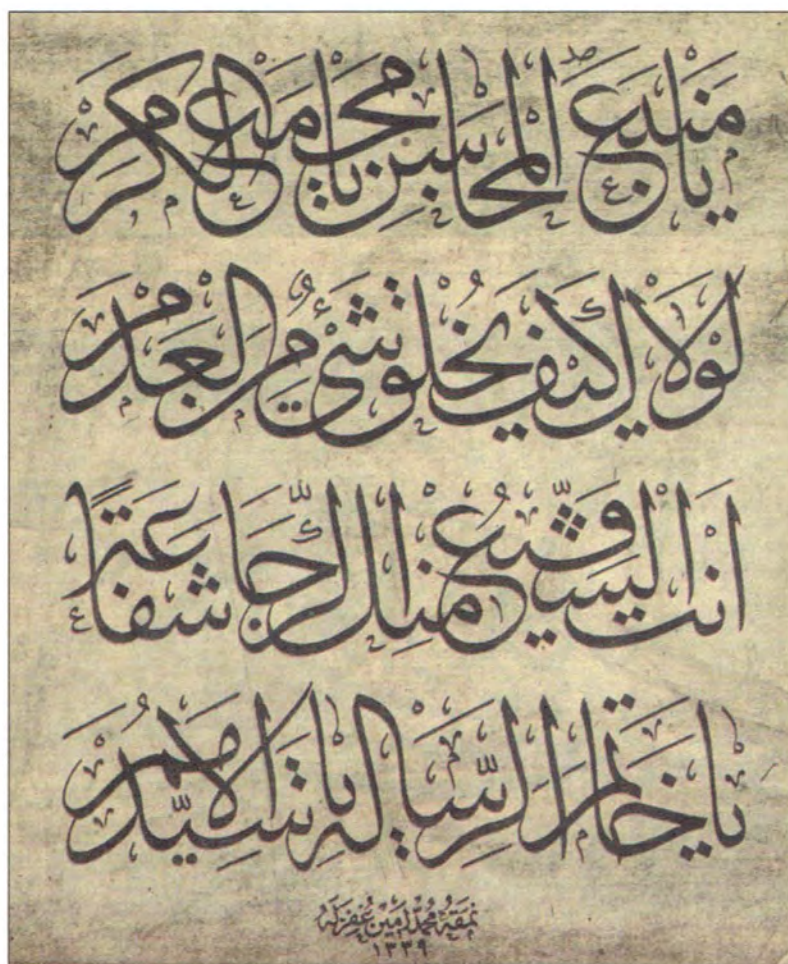 يا منبع المحاسن يا مجمع الكرم
لولاك كيف يخلق شيء من العدم
انت شفيع الرجا شفاعة
يا خاتم الرسالة يا سيد الامم
نمقه محمد امين غفر له
١٣٣٩